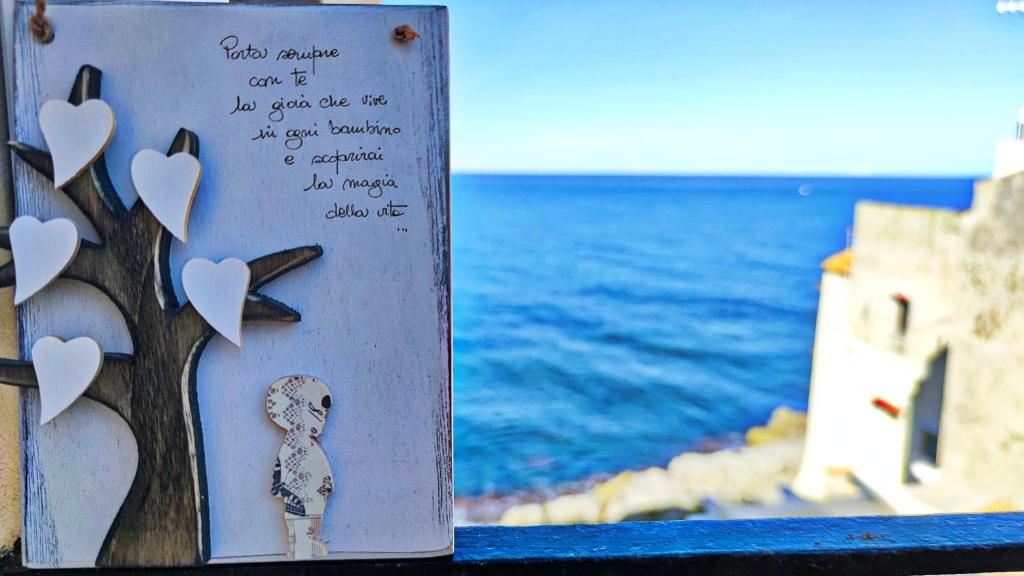 Porta sempre
con te
la gioia che vive
in ogni bambino
e scoprirai
la magia
della vita
...